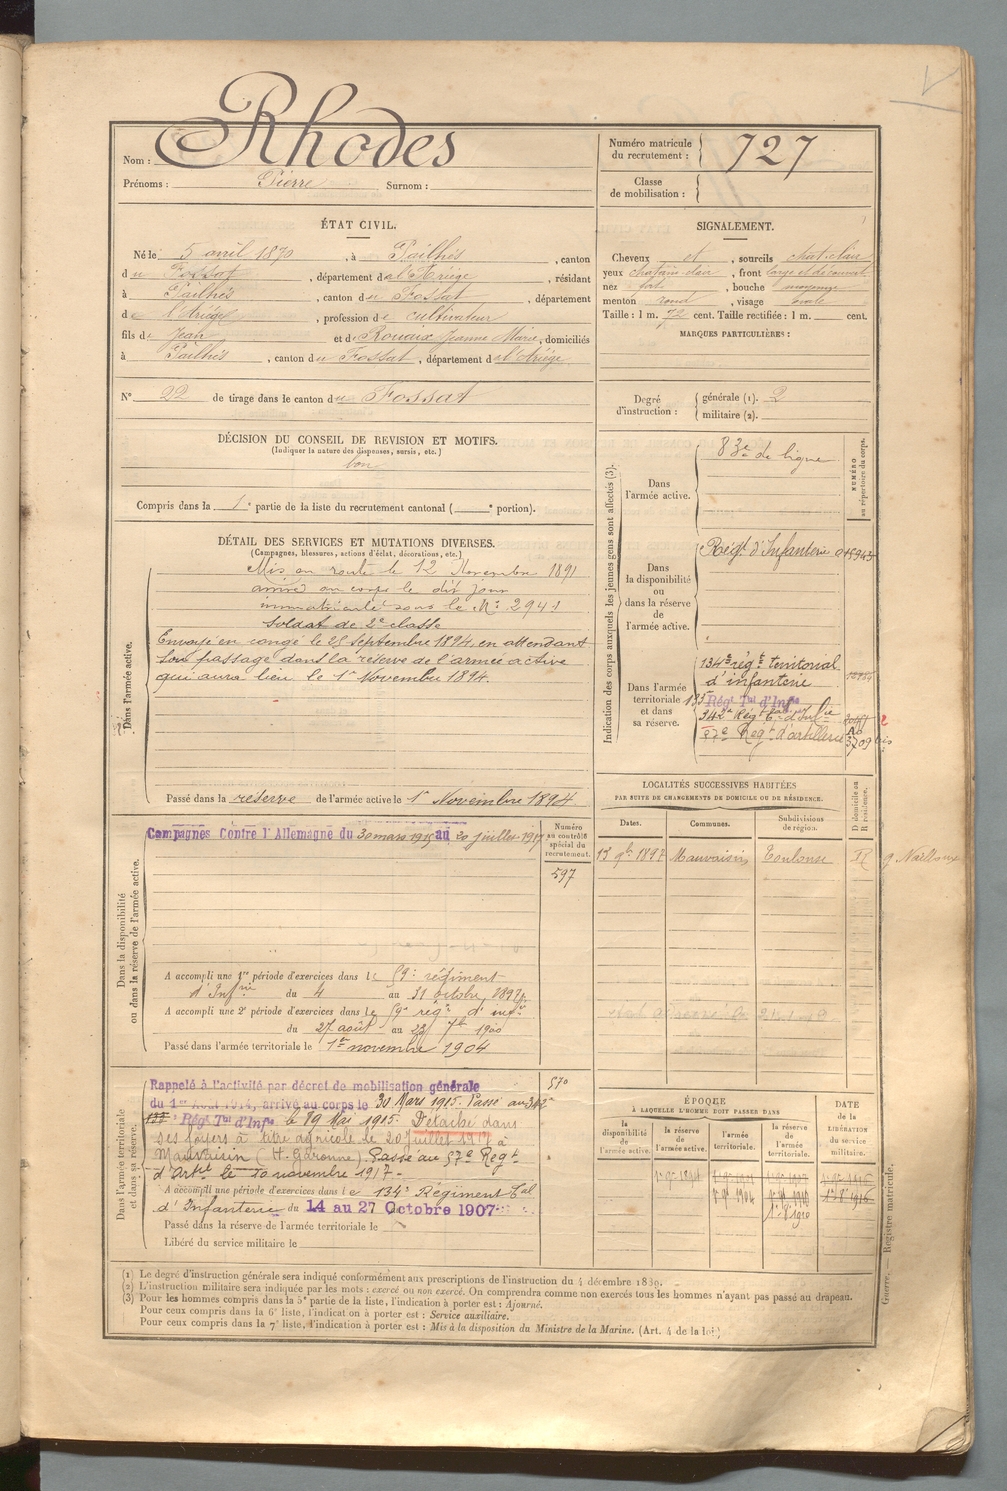 Nom : Rhodes
Prénoms : Pierre Surnom :
Numéro matricule du recrutement : 727
Classe de mobilisation :
ÉTAT CIVIL.
Né le 5 avril 1870, à Pailhès, canton
du Fossat, département de l'Ariège, résidant
à Pailhès, canton du Fossat, département
de l'Ariège, profession de cultivateur
fils de Jean et de Rouaix Jeanne Marie, domiciliés
à Pailhès, canton du Fossat, département de l'Ariège.
N° 22 de tirage dans le canton du Fossat
SIGNALEMENT.
Cheveux et, sourcils chat. clair
yeux chatain clair, front large et découvert
nez fort, bouche moyenne
menton rond, visage ovale
Taille : 1 m. 72 cent. Taille rectifiée : 1 m. cent.
MARQUES PARTICULIÈRES :
Degré d'instruction : générale (1). 2
militaire (2).
DÉCISION DU CONSEIL DE REVISION ET MOTIFS.
(Indiquer la nature des dispenses, sursis, etc.)
bon
Compris dans la 1e partie de la liste du recrutement cantonal ( e portion).
DÉTAIL DES SERVICES ET MUTATIONS DIVERSES.
(Campagnes, blessures, actions d'éclat, décorations, etc.)
Dans l'armée active.
Mis en route le 12 Novembre 1891
arrivé au corps le dit jour
immatriculé sous le N° 2941
soldat de 2e classe
Envoyé en congé le 25 septembre 1894, en attendant
son passage dans la réserve de l'armée active
qui aura lieu le 1er Novembre 1894.
Passé dans la réserve de l'armée active le 1er Novembre 1894
Indication des corps auxquels les jeunes gens sont affectés (3).
NUMÉRO au répertoire du corps.
Dans l'armée active.
83e de ligne
Dans la disponibilité ou dans la réserve de l'armée active.
Régt d'Infanterie
Dans l'armée territoriale et dans sa réserve.
134e régt territorial
d'infanterie
135 Régt Tal d'Infie
342e Régt
57e Régt d'artillerie
LOCALITÉS SUCCESSIVES HABITÉES
PAR SUITE DE CHANGEMENTS DE DOMICILE OU DE RÉSIDENCE.
Dates. Communes. Subdivisions de région. D domicile ou R résidence.
13 9bre 1897 Mauvaisin Toulouse R
Dans la disponibilité ou dans la réserve de l'armée active.
Campagnes Contre l'Allemagne du 30 mars 1915 au 20 juillet 1917
Numéro au contrôle spécial du recrutement.
597
A accompli une 1re période d'exercices dans le 59e régiment
d'Infrie du 4 au 31 octobre 1897
A accompli une 2e période d'exercices dans le 59e régt d'infie
du 27 août au 23 7bre 1900
Passé dans l'armée territoriale le 1er novembre 1904
Dans l'armée territoriale et dans sa réserve.
570
Rappelé à l'activité par décret de mobilisation générale
du 1er Août 1914, arrivé au corps le 30 Mars 1915. Passé au 342e
Régt Tal d'Infie le 19 Mai 1915. Détaché dans
ses foyers à titre agricole le 20 Juillet 1917 à
Mauvaisin (H. Garonne). Passé au 57e Régt
d'Artie le 10 novembre 1917 -
A accompli une période d'exercices dans le 134e Régiment Tal
d'Infanterie du 14 au 27 Octobre 1907
Passé dans la réserve de l'armée territoriale le
Libéré du service militaire le
ÉPOQUE
À LAQUELLE L'HOMME DOIT PASSER DANS
la disponibilité de l'armée active.
la réserve de l'armée active.
l'armée territoriale.
la réserve de l'armée territoriale.
DATE de la LIBÉRATION du service militaire.
Guerre. — Registre matricule.
(1) Le degré d'instruction générale sera indiqué conformément aux prescriptions de l'instruction du 4 décembre 1889.
(2) L'instruction militaire sera indiquée par les mots : exercé ou non exercé. On comprendra comme non exercés tous les hommes n'ayant pas passé au drapeau.
(3) Pour les hommes compris dans la 5e partie de la liste, l'indication à porter est : Ajourné.
Pour ceux compris dans la 6e liste, l'indication à porter est : Service auxiliaire.
Pour ceux compris dans la 7e liste, l'indication à porter est : Mis à la disposition du Ministre de la Marine. (Art. 4 de la loi)